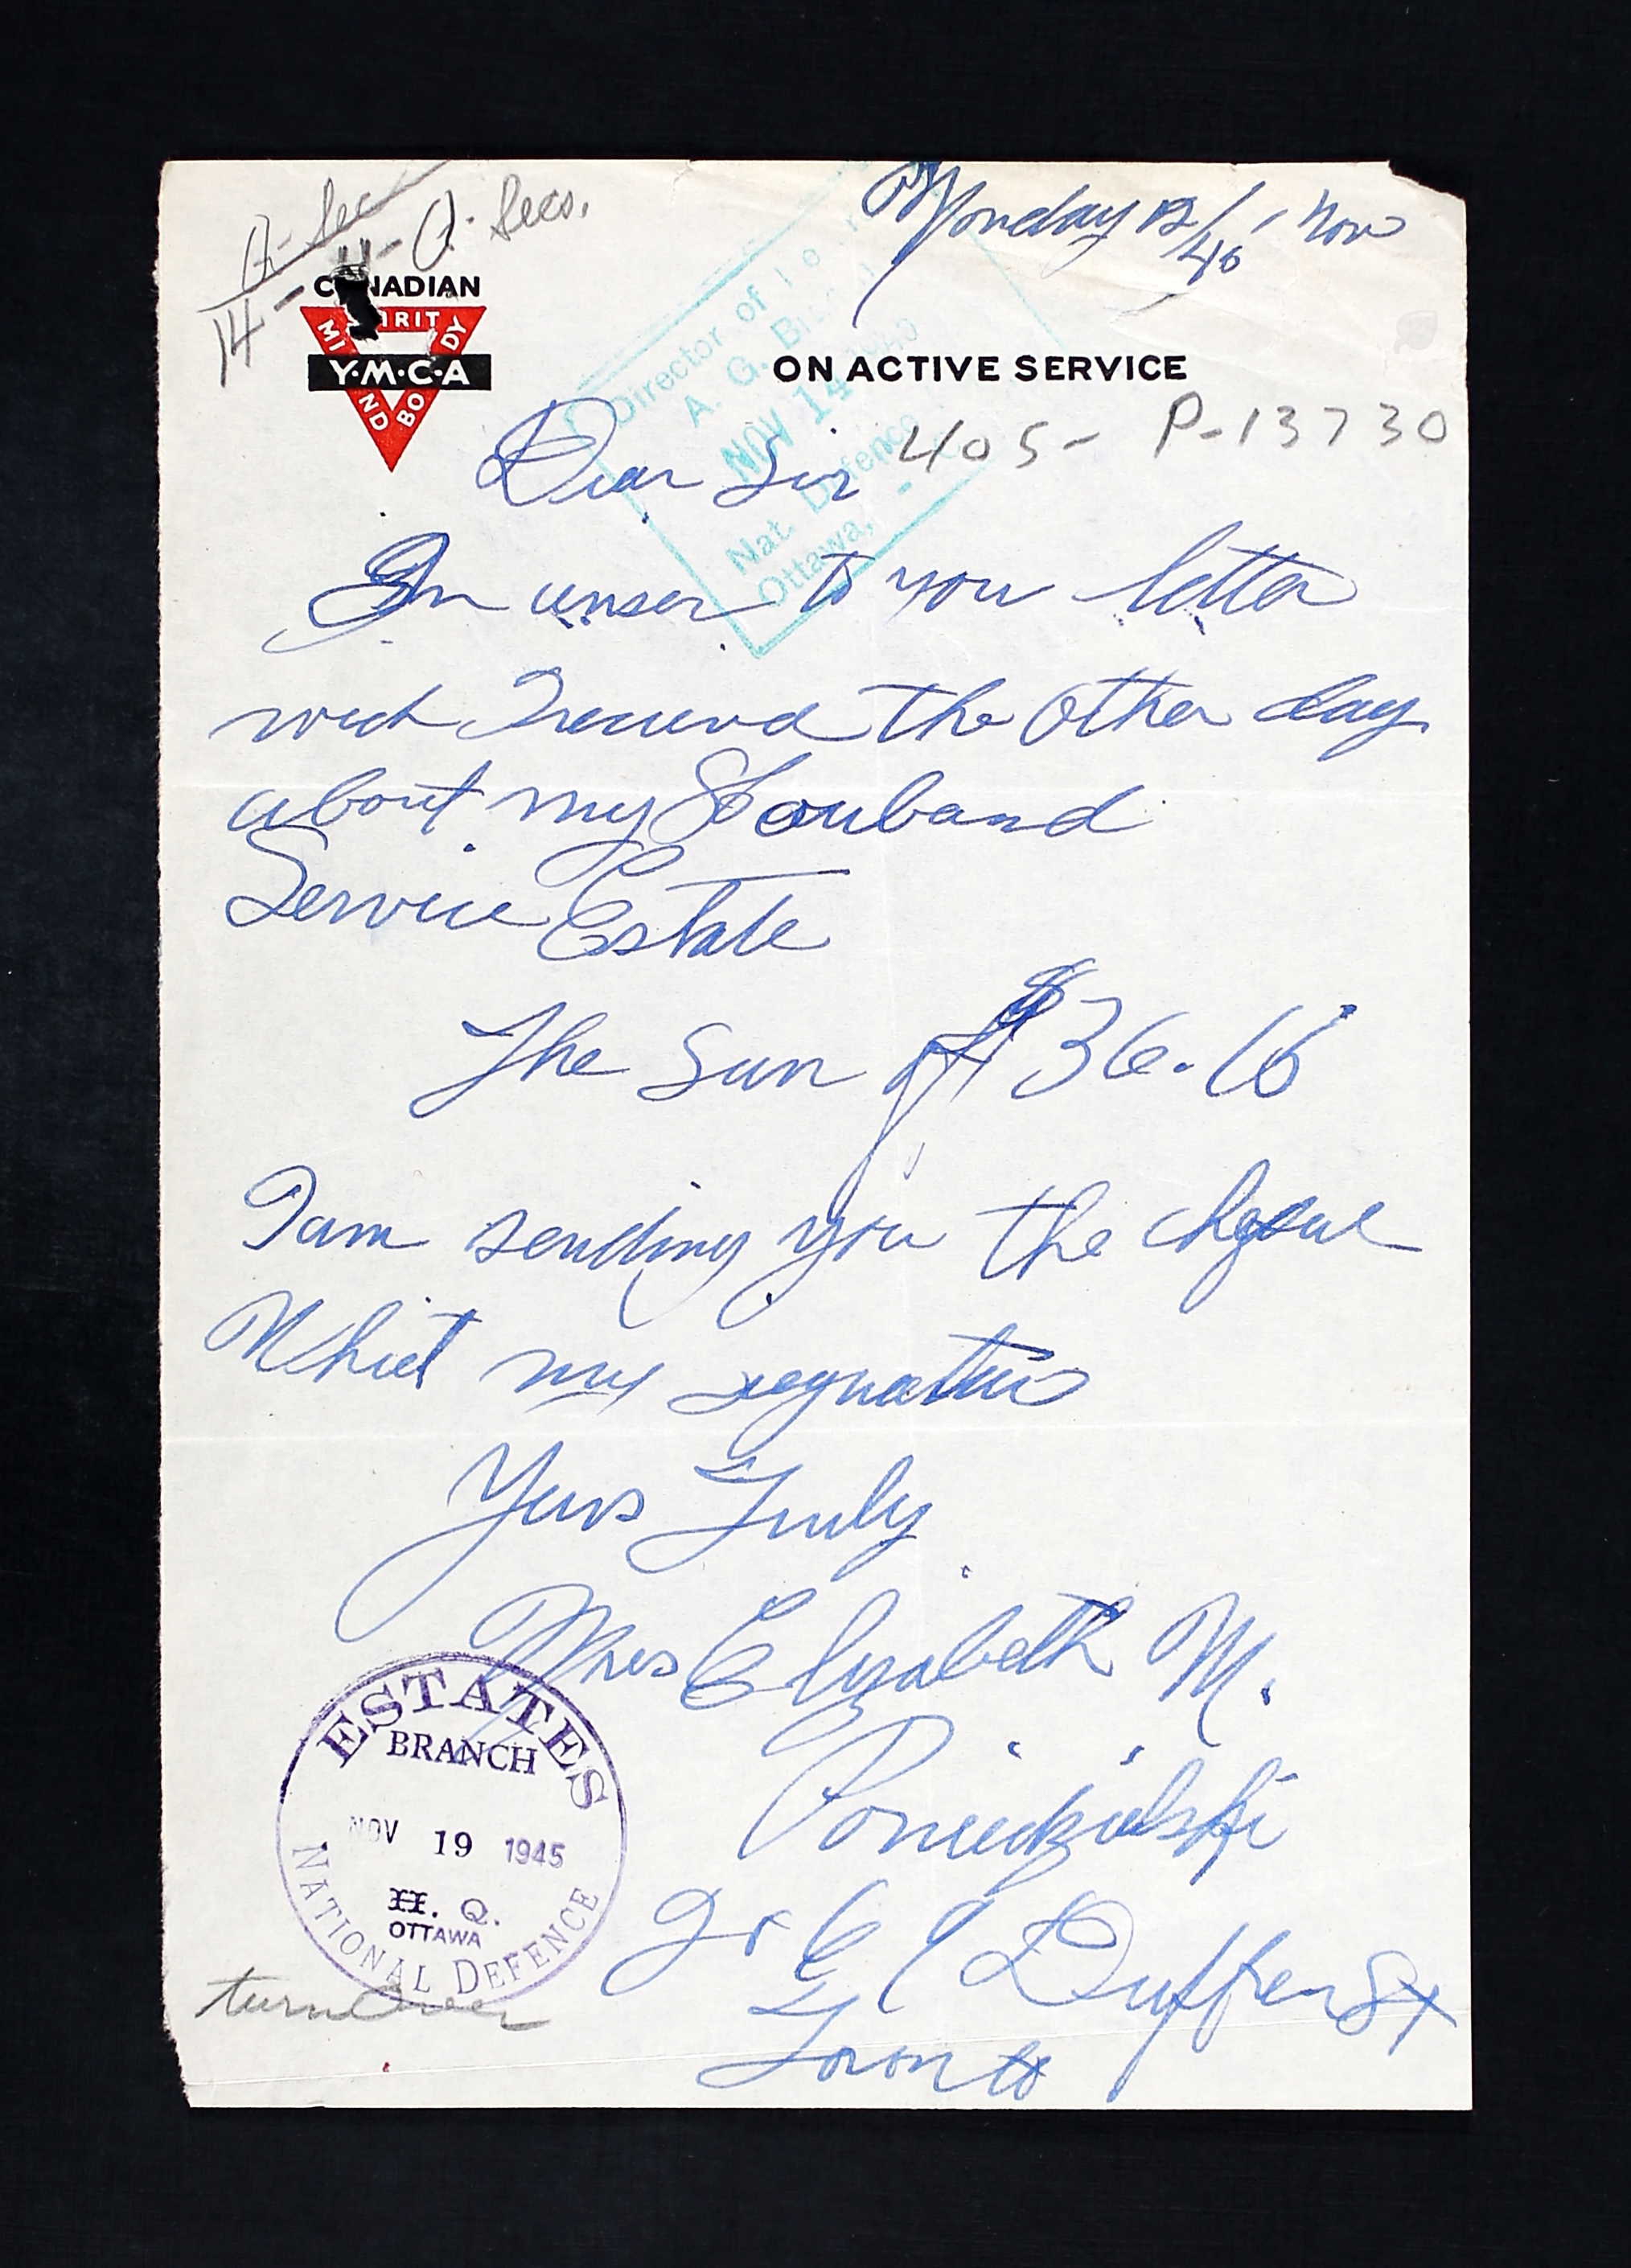 A-Sec
14 - A. Secs.
Monday 12/ Nov
CANADIAN
SPIRIT
MIND
BODY
Y·M·C·A
ON ACTIVE SERVICE
Director of
A. G. B
NOV 14
Nat. Defence
Ottawa,
405- P-13730
Dear Sir
In unser to you letter
wich I recievd the other day
about my Housband
Service Estate
The Sum of $36.16
I am sending you the
Whict my segnature
Yurs Truly
Mrs Elyzabeth M.
ESTATES
BRANCH
NOV 19 1945
H. Q.
OTTAWA
NATIONAL DEFENCE
Duffer St
Toronto
turn over